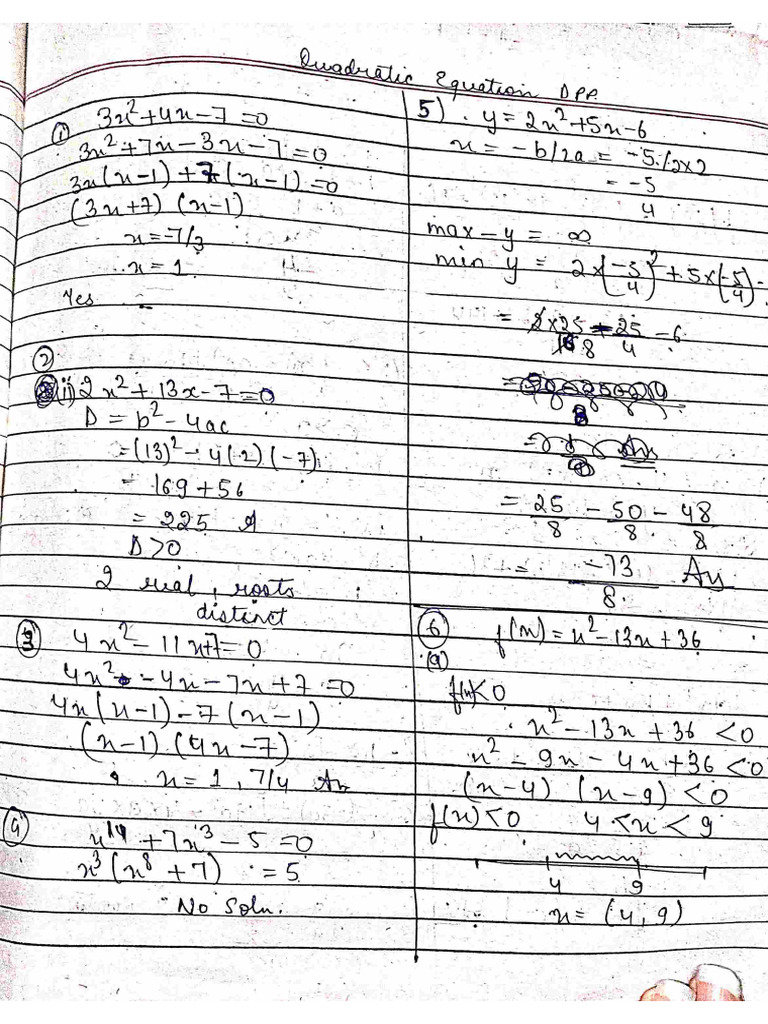 Quadratic Equation DPP.
① 3x²+4x-7=0
3x²+7x-3x-7=0
3x(x-1)+7(x-1)=0
(3x+7) (x-1)
x=-7/3
x=1
Yes
②
(ii) 2x²+13x-7=0
D = b²-4ac
=(13)²-4(2)(-7)
= 169+56
= 225
D>0
2 real, roots
distinct
③ 4x²-11x+7=0
4x²-4x-7x+7=0
4x(x-1)-7(x-1)
(x-1) (4x-7)
x=1, 7/4 Ans
④ x¹⁴+7x³-5=0
x³(x⁸+7) =5
No Soln.
5) y=2x²+5x-6
x = -b/2a = -5/2×2
= -5/4
max-y = ∞
min y = 2×(-5/4)²+5×(-5/4)-
= 2×25/16 8 - 25/4 -6
= 25/8 - 50/8 - 48/8
= -73/8. Ans
⑥ f(x)=x²-13x+36
(a)
f(x)<0
x²-13x+36<0
x²-9x-4x+36<0
(x-4) (x-9)<0
f(x)<0 4<x<9
4 9
∴ x=(4,9)